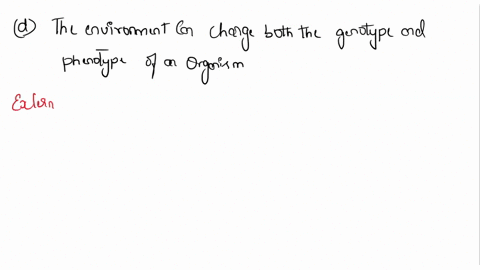 (d) The environment can change both the genotype and
phenotype of an Organism
Extern